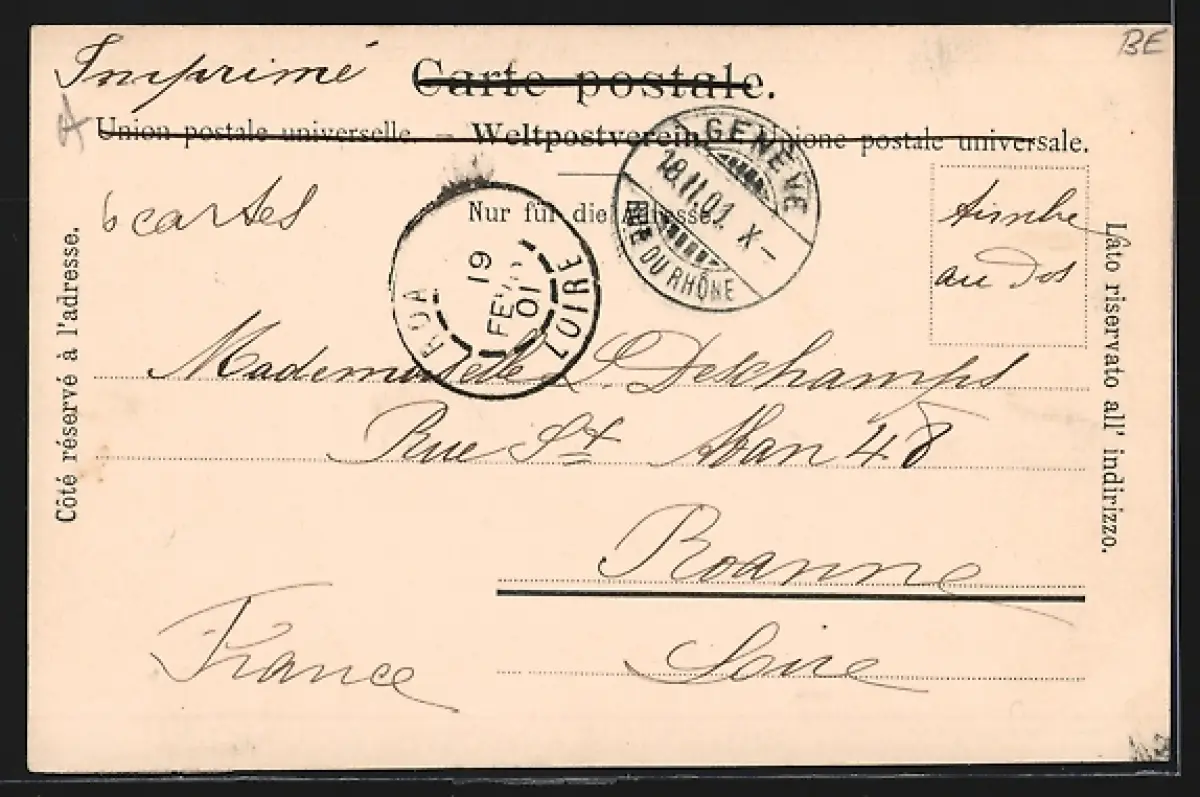 BE
Imprimé
Carte postale.
Union postale universelle. — Weltpostverein. Unione postale universale.
GENÈVE
18.II.01. X–
RUE DU RHÔNE
6 cartes
Nur für die Adresse.
timbre
au dos
ROA
19
FEV
01
LOIRE
Côté réservé à l'adresse.
Lato riservato all' indirizzo.
Mademoiselle L. Deschamps
Rue St Alban 48
Roanne
France
Loire